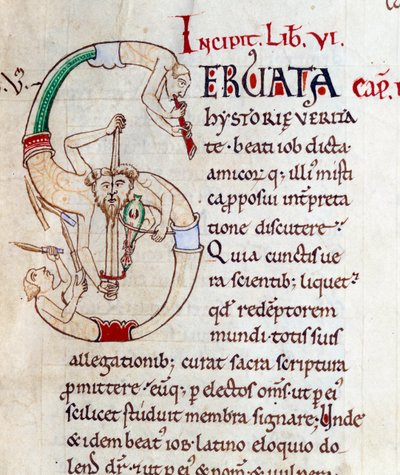 Incipit. Lib. VI.
SERVATA Cap.
hystorię verita
te · beati iob dicta
amicorꝫ q; illi᾿ misti
ca ꝓposui int̄preta
tione discutere·
Quia cunctis ue
ra scientib; liquet
qd̄ redēptorem
mundi totis suis
allegationib; curat sacra scriptura
ꝓmittere· eūq; ꝑ electos om̄s· ut ꝑ ei᾿
scilicet studuit membra signare; Unde
& idem beat᾿ iob· latino eloquio do
lens dr̄· ut ꝑ ei᾿ & nom̄